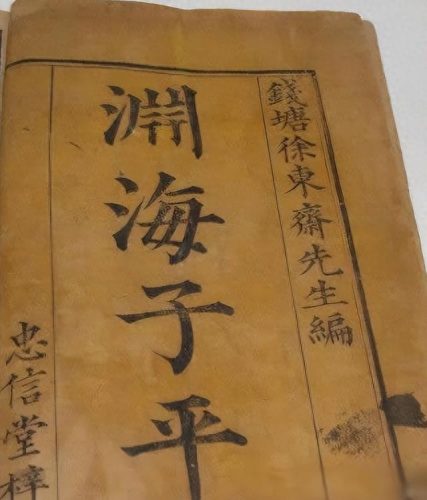 錢塘徐東齋先生編
淵海子平
忠信堂梓